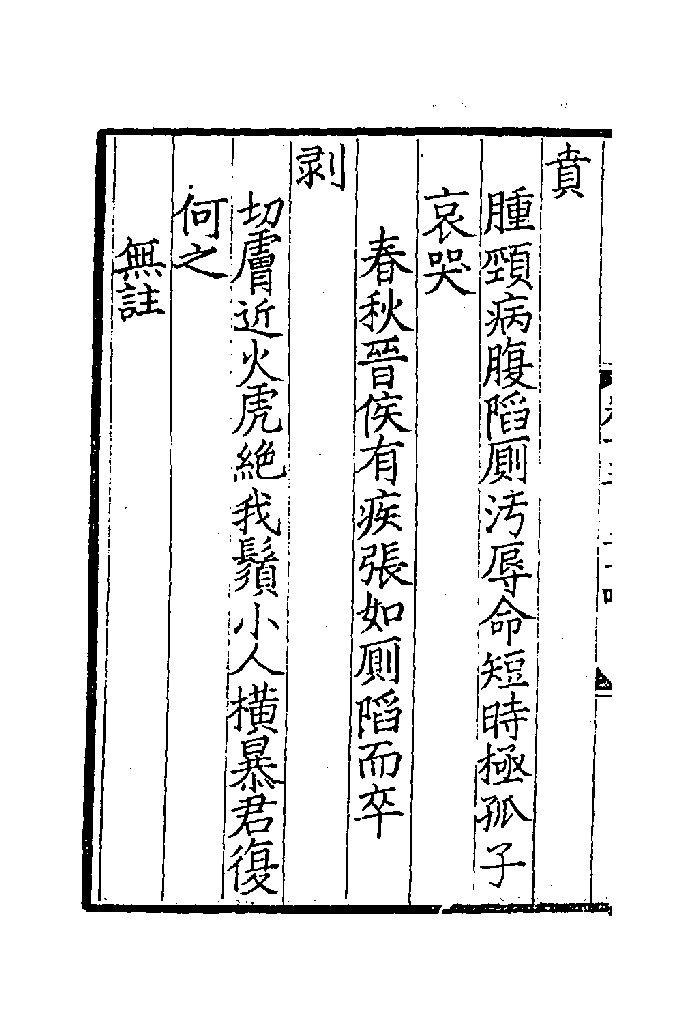 賁
腫頸病腹陷厠汚辱命短時極孤子
哀哭
春秋晉侯有疾張如厠陷而卒
剥
切膚近火虎絶我鬚小人橫暴君復
何之
無註